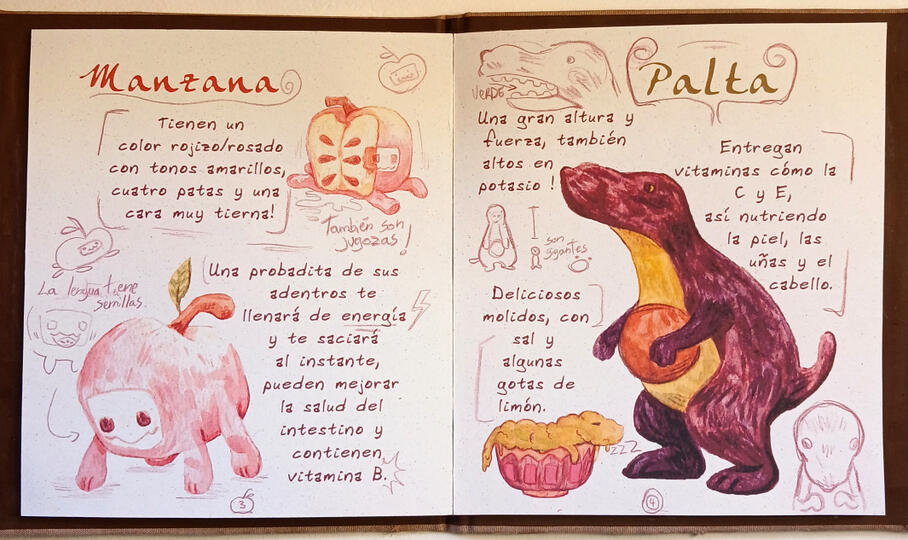 Manzana
Tienen un
color rojizo/rosado
con tonos amarillos,
cuatro patas y una
cara muy tierna!
También son
jugozas!
La lengua tiene
semillas.
Una probadita de sus
adentros te
llenará de energía
y te saciará
al instante,
pueden mejorar
la salud del
intestino y
contienen
vitamina B.
3
Palta
VERDE
Una gran altura y
fuerza, también
altos en
potasio!
son
gigantes
Entregan
vitaminas cómo la
C y E,
así nutriendo
la piel, las
uñas y el
cabello.
Deliciosos
molidos, con
sal y
algunas
gotas de
limón.
zzz
4